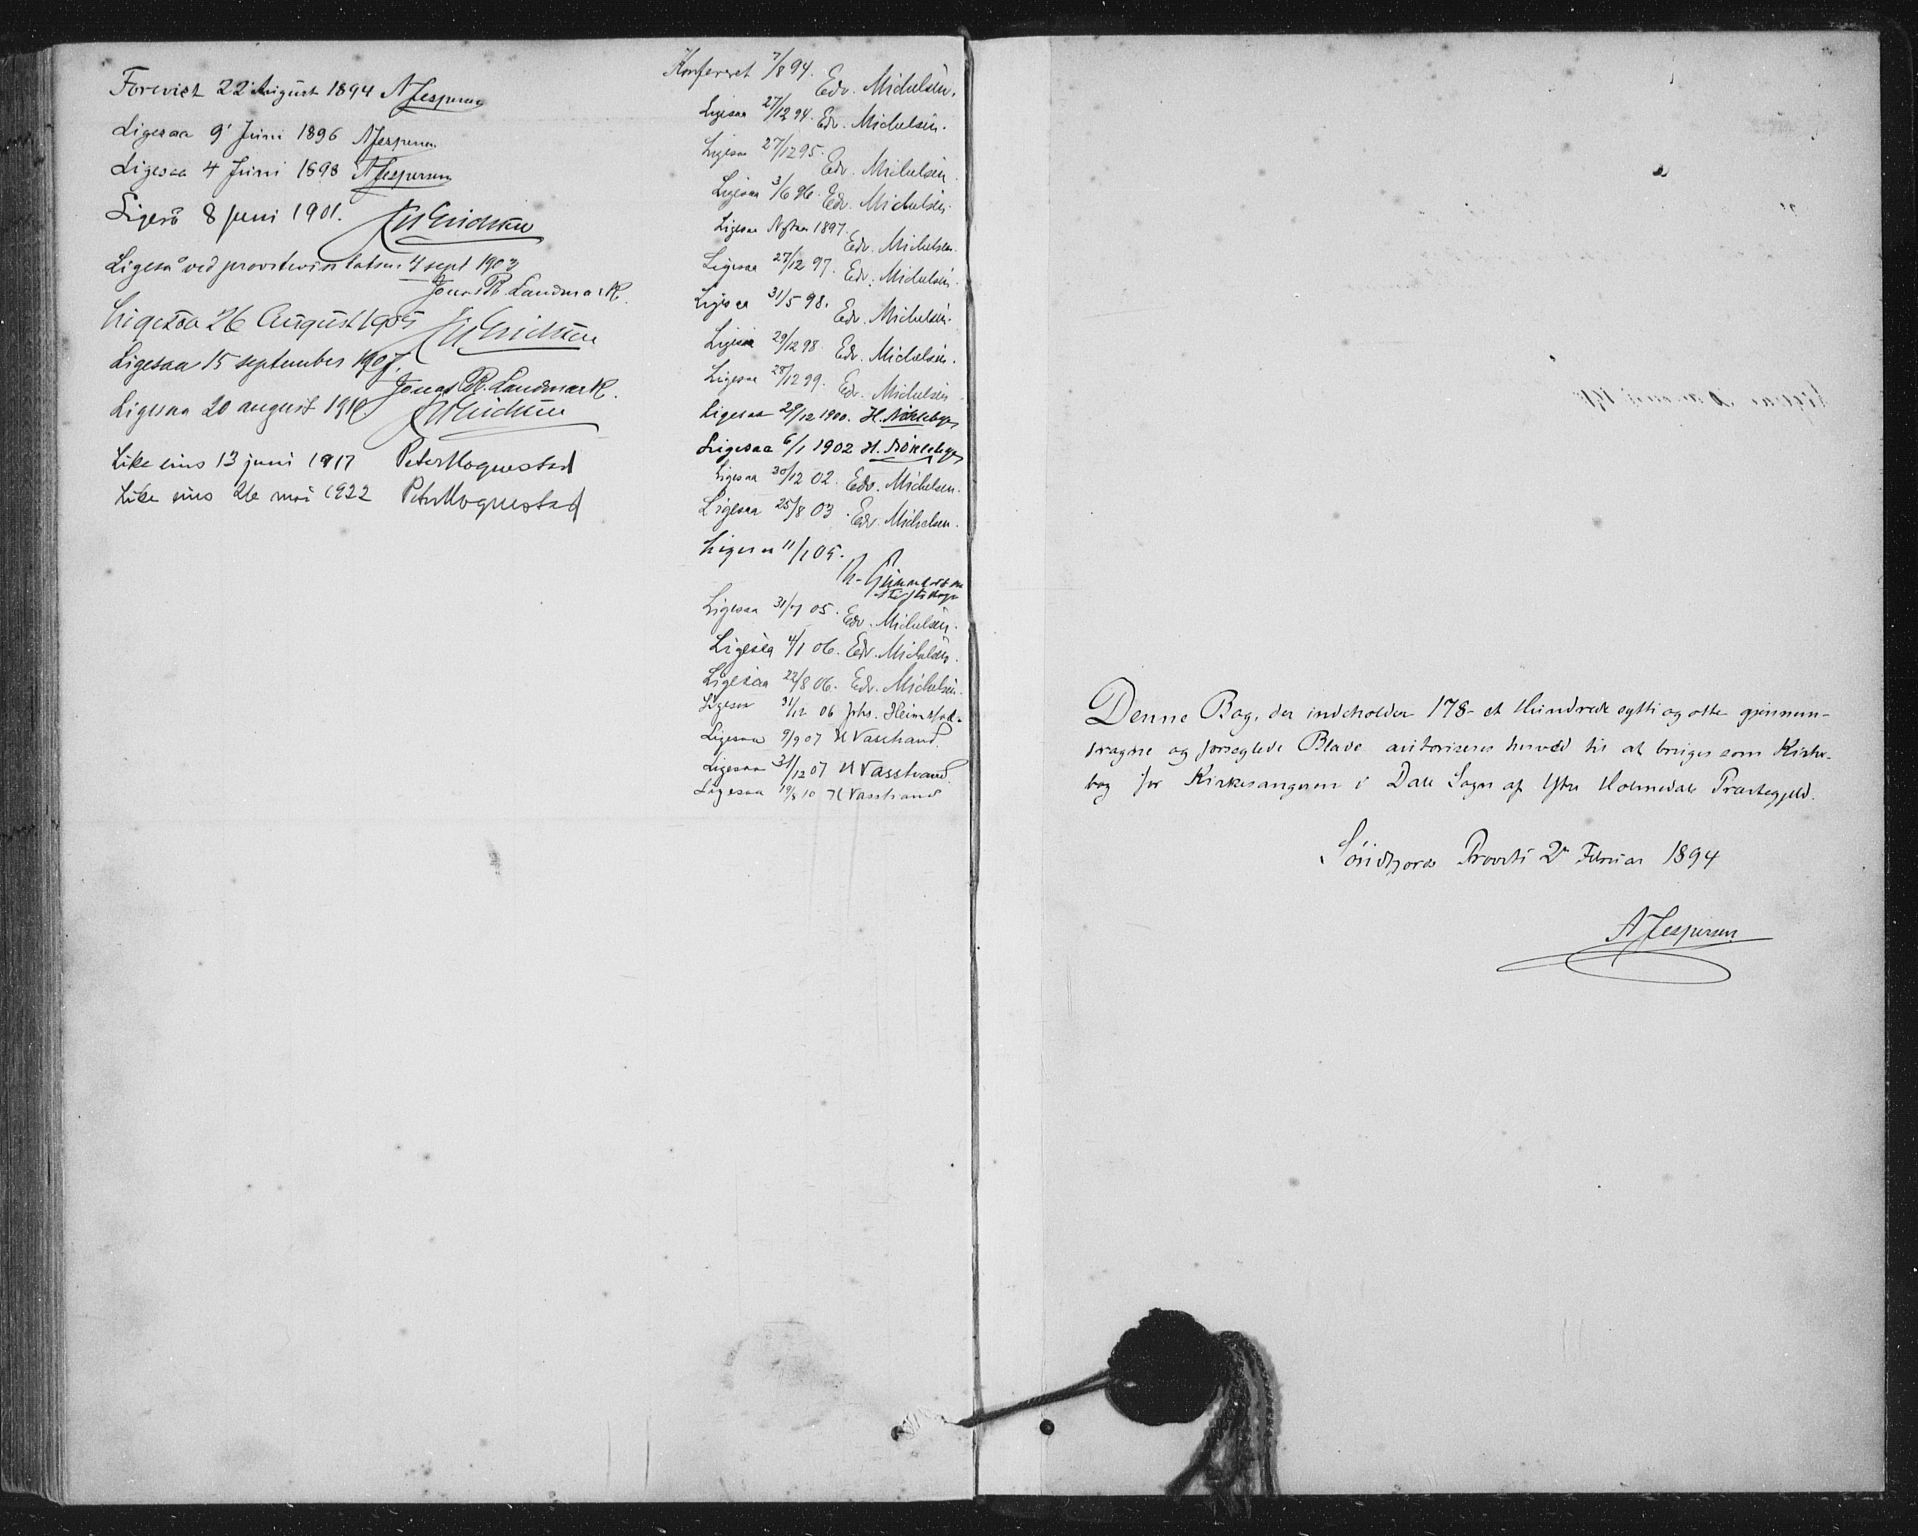 Forevist 22 August 1894 A Jespersen
Ligesaa 9' Juni 1896 A Jespersen
Ligesaa 4 Juni 1898 A Jespersen
Ligeså 8 juni 1901.
Ligeså ved provstevisitatsen 4 sept 1903
Jonas R. Landmark.
Ligesaa 26 August 1905
Ligesaa 15 september 1907.
Jonas R. Landmark.
Ligesaa 20 august 1910
Like eins 13 juni 1917 Peter Hognestad
Like eins 26 mai 1922 Peter Hognestad
Konfereret 7/8 94. Edv. Michelsen.
Ligesaa 27/12 94. Edv. Michelsen.
Ligesaa 27/12 95. Edv. Michelsen.
Ligesaa 3/6 96. Edv. Michelsen.
Ligesaa Nytaar 1897. Edv. Michelsen.
Ligesaa 27/12 97. Edv. Michelsen.
Ligesaa 31/5 98. Edv. Michelsen.
Ligesaa 29/12 98. Edv. Michelsen.
Ligesaa 28/12 99. Edv. Michelsen
Ligesaa 29/12 1900. H.
Ligesaa 6/1 1902 H.
Ligesaa 30/12 02. Edv. Michelsen.
Ligesaa 25/8 03. Edv. Michelsen.
Ligesaa 11/1 05.
Ligesaa 31/7 05. Edv. Michelsen.
Ligesaa 4/1 06. Edv. Michelsen.
Ligesaa 22/8 06. Edv. Michelsen.
Ligesaa 31/12 06 Johs. Heimstad.
Ligesaa 9/9 07 H Vasstrand.
Ligesaa 31/12 07 H Vasstrand.
Ligesaa 19/8 10 H Vasstrand
Denne Bog, der indeholder 178 - et Hundrede sytti og otte gjennem-
dragne og forseglede Blade autoriseres herved til at bruges som Kirke-
bog for Kirkesangeren i Dale Sogn af Ytre Holmedals Præstegjeld.
Søndfjords Provsti 2den Februar 1894
A Jespersen